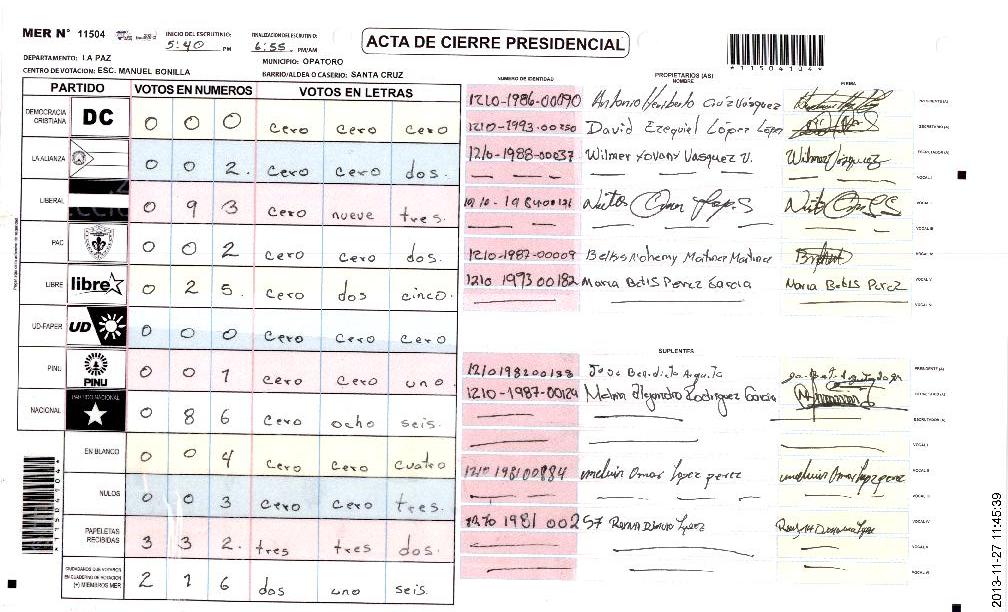 MER N° 11504
INICIO DEL ESCRUTINIO: 5:40 PM
FINALIZACION DEL ESCRUTINIO: 6:55 PM/AM
ACTA DE CIERRE PRESIDENCIAL
*11504104*
DEPARTAMENTO: LA PAZ
MUNICIPIO: OPATORO
CENTRO DE VOTACION: ESC. MANUEL BONILLA
BARRIO/ALDEA O CASERIO: SANTA CRUZ
PARTIDO VOTOS EN NUMEROS VOTOS EN LETRAS
DEMOCRACIA CRISTIANA DC 0 0 0 cero cero cero
LA ALIANZA 0 0 2. cero cero dos.
LIBERAL 0 9 3 cero nueve tres.
PAC 0 0 2 cero cero dos.
LIBRE libre 0 2 5. cero dos cinco.
UD-FAPER UD 0 0 0 cero cero cero
PINU PINU 0 0 1 cero cero uno.
NACIONAL PARTIDO NACIONAL 0 8 6 cero ocho seis.
EN BLANCO 0 0 4 cero cero cuatro
NULOS 0 0 3 cero cero tres.
PAPELETAS RECIBIDAS 3 3 2. tres tres dos.
CIUDADANOS QUE VOTARON EN CUADERNO DE VOTACION (+) MIEMBROS MER 2 1 6 dos uno seis.
NUMERO DE IDENTIDAD PROPIETARIOS (AS) NOMBRE FIRMA
1210-1986-00090 Antonio Heriberto Vasquez PRESIDENTE (A)
1210-1993-00250 David Ezequiel López López SECRETARIO (A)
1210-1988-00037 Wilmer Yovany Vasquez V. Wilmer Vasquez ESCRUTADOR (A)
VOCAL I
VOCAL II
VOCAL III
1210-1987-00009 Martinez Martinez VOCAL IV
1210 1993 00182 Maria Betis Perez Garcia Maria Betis Perez VOCAL V
VOCAL VI
SUPLENTES
1210198200138 Jose Benedicto Argueta PRESIDENTE (A)
1210-1987-00129 Alejandro Rodriguez Garcia SECRETARIO (A)
ESCRUTADOR (A)
VOCAL I
1210 198100884 Omar Lopez perez VOCAL II
VOCAL III
1210 1981 00257 VOCAL IV
VOCAL V
VOCAL VI
*11504104*
2013-11-27 11:45:39